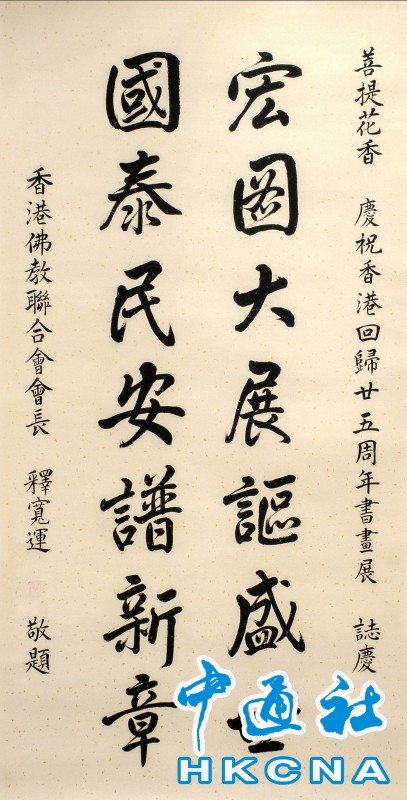 菩提花香 慶祝香港回歸廿五周年書畫展 誌慶
宏圖大展謳盛世
國泰民安譜新章
香港佛教聯合會會長 釋寬運 敬題
中通社
HKCNA